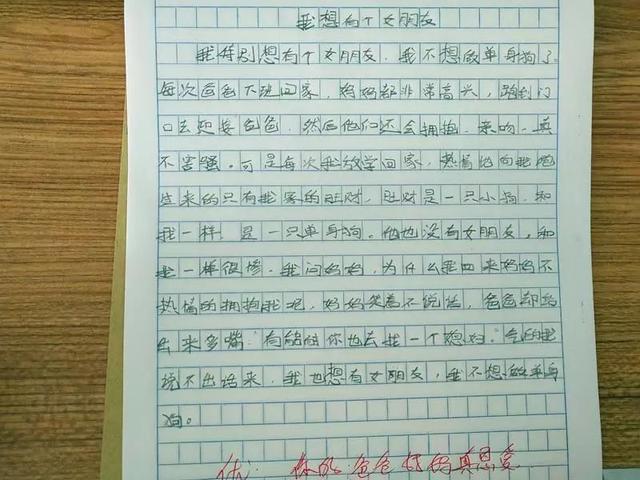 我想有个女朋友
我特别想有个女朋友，我不想做单身狗了。
每次爸爸下班回家，妈妈都非常高兴，跑到门
口去迎接爸爸，然后他们还会拥抱，亲吻，真
不害羞。可是每次我放学回家，热情地向我跑
过来的只有我家的旺财，旺财是一只小狗，和
我一样，是一只单身狗。他也没有女朋友，和
我一样很惨。我问妈妈，为什么我回来妈妈不
热情的拥抱我呢，妈妈笑着不说话，爸爸却跑
出来多嘴“有能耐你也去找一个媳妇。”气的我
说不出话来，我也想有女朋友，我不想做单身
狗。
优：你的爸爸妈妈真恩爱